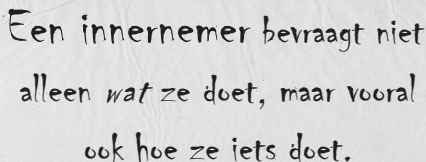 Een innernemer bevraagt niet
alleen wat ze doet, maar vooral
ook hoe ze iets doet.